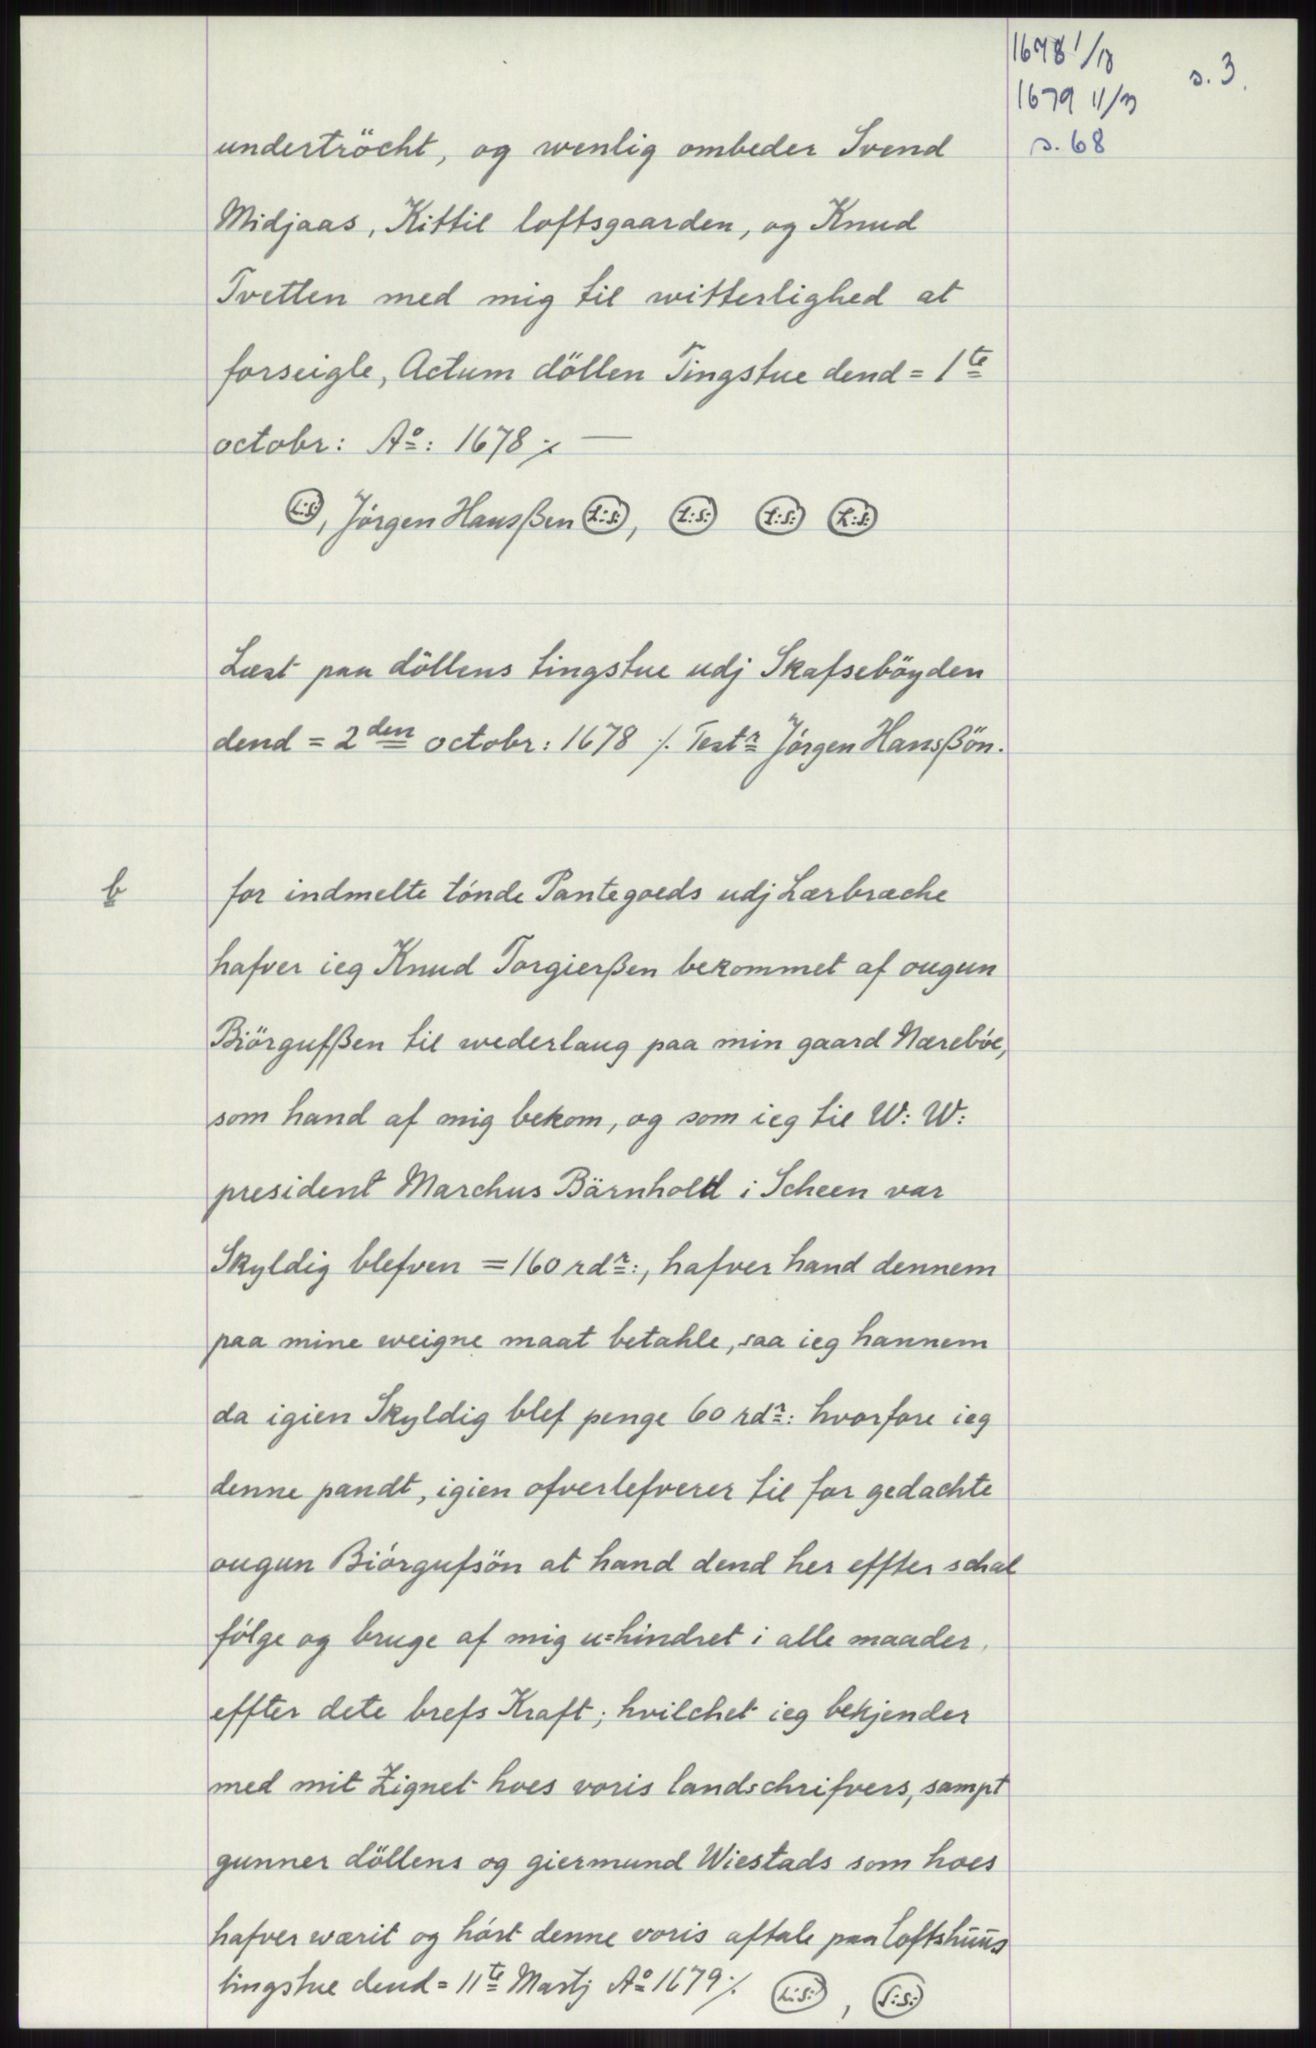 1678 1/10
1679 11/3
s. 3.
s. 68
undertröcht, og wenlig ombeder Svend
Midjaas, Kittil loftsgaarden, og Knud
Tvetten med mig til witterlighed at
forseigle, Actum döllen Tingstue dend = 1te
octobr: Ao: 1678 ./. —
L:S:, Jörgen Hansßen L:S:, L:S: L:S: L:S:
Læst paa döllens tingstue udj Skafseböyden
dend = 2den octobr: 1678 ./. Testr Jörgen Hansßön.
b
for indmelte tönde Pantegoeds udj Lærbræche
hafver ieg Knud Torgierßen bekommet af ougun
Biörgufßen til wederlaug paa min gaard Næreböe,
som hand af mig bekom, og som ieg til W: W:
president Marchus Bärnholdt i Scheen var
Skyldig blefven = 160 rdr:, hafver hand dennem
paa mine weigne maat betahle, saa ieg hannem
da igien Skyldig blef penge 60 rdr: hvorfore ieg
denne pandt, igien ofverlefverer til for gedachte
ougun Biörgufsön at hand dend her effter schal
fölge og bruge af mig u=hindret i alle maader,
effter dete brefs Kraft; hvilchet ieg bekjender
med mit Zignet hoes voris landschrifvers, sampt
gunner döllens og giermund Wiestads som hoes
hafver wærit og hört denne voris aftale paa Loftshuus
tingstue dend = 11te Martj Ao 1679 ./. L:S:, L:S: